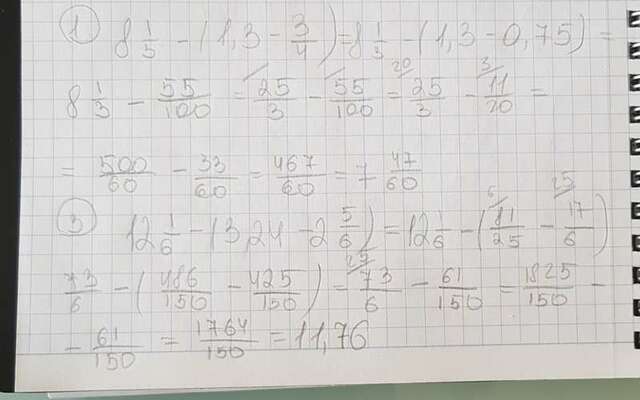 1) 8 1/3 - (1,3 - 3/4) = 8 1/3 - (1,3 - 0,75) =
8 1/3 - 55/100 = 25/3 - 55/100 = 20 25/3 - 3 11/20 =
= 500/60 - 33/60 = 467/60 = 7 47/60
3) 12 1/6 - (3,24 - 2 5/6) = 12 1/6 - (6 81/25 - 25 17/6)
73/6 - (486/150 - 425/150) = 25 73/6 - 61/150 = 1825/150 -
- 61/150 = 1764/150 = 11,76